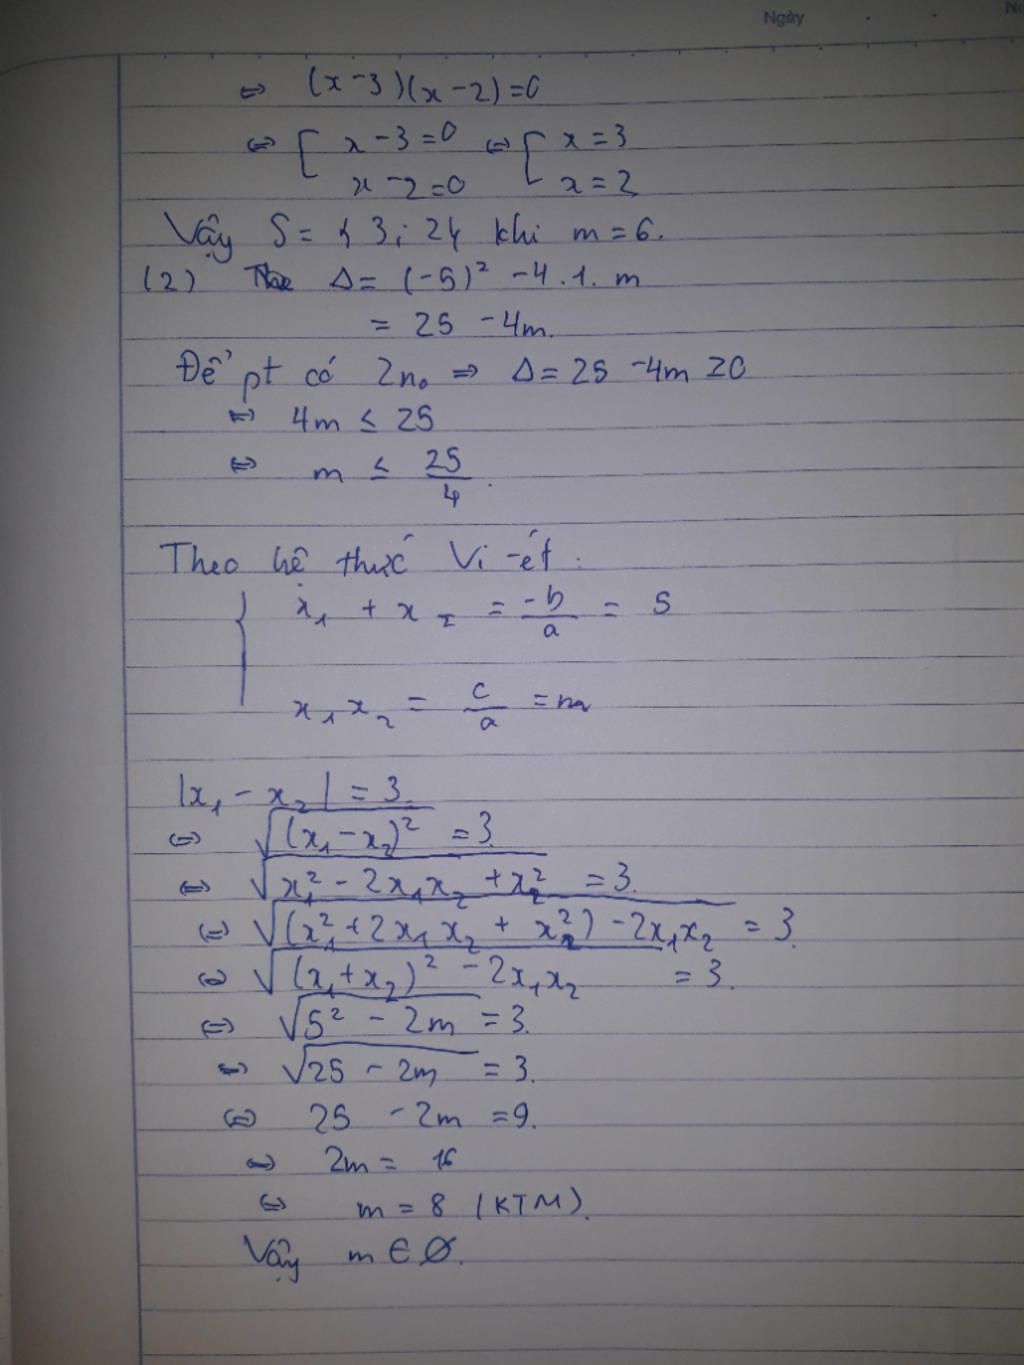 Ngày
⇔ (x-3)(x-2)=0
⇔ [ x-3=0 ⇔ [ x=3
x-2=0 x=2
Vậy S= {3; 2} khi m=6.
(2) Δ= (-5)² -4.1.m
= 25 -4m.
Để pt có 2n₀ ⇒ Δ=25 -4m ≥0
⇔ 4m ≤ 25
⇔ m ≤ 25/4.
Theo hệ thức Vi-ét:
{ x₁ + x₂ = -b/a = 5
x₁x₂ = c/a = m
|x₁ - x₂| = 3.
⇔ √(x₁-x₂)² = 3.
⇔ √x₁² - 2x₁x₂ + x₂² = 3.
⇔ √(x₁² + 2x₁x₂ + x₂²) - 2x₁x₂ = 3.
⇔ √(x₁+x₂)² - 2x₁x₂ = 3.
⇔ √5² - 2m = 3.
⇔ √25 - 2m = 3.
⇔ 25 - 2m = 9.
⇔ 2m = 16
⇔ m = 8 (KTM).
Vậy m ∈ Ø.